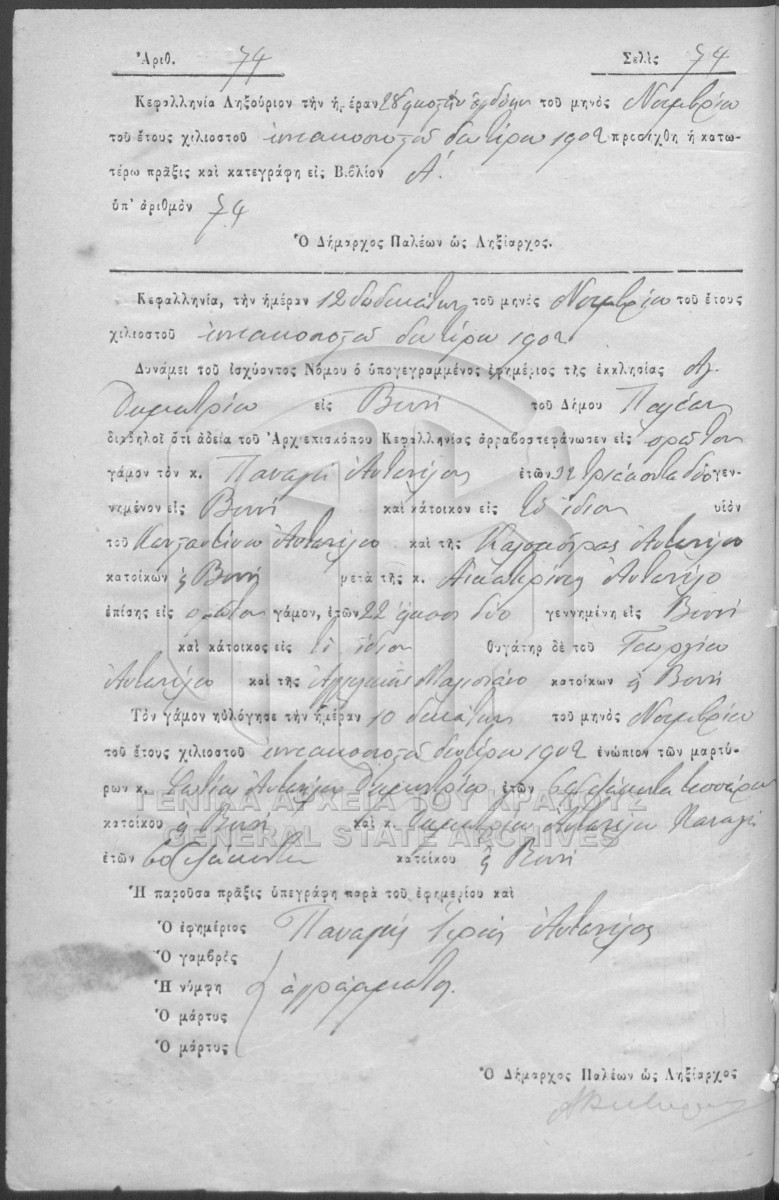 Ἀριθ. 74 Σελὶς 74
Κεφαλληνία Ληξούριον τὴν ἡμέραν 28 τοῦ μηνὸς Νοεμβρίου
τοῦ ἔτους χιλιοστοῦ ἐννεακοσιοστοῦ δευτέρου 1902 προσήχθη ἡ κατω-
τέρω πρᾶξις καὶ κατεγράφη εἰς Βιβλίον Α΄.
ὑπ' ἀριθμὸν 74
Ὁ Δήμαρχος Παλέων ὡς Ληξίαρχος.
Κεφαλληνία, τὴν ἡμέραν 12 δωδεκάτην τοῦ μηνὸς Νοεμβρίου τοῦ ἔτους
χιλιοστοῦ ἐννεακοσιοστοῦ δευτέρου 1902
Δυνάμει τοῦ ἰσχύοντος Νόμου ὁ ὑπογεγραμμένος ἐφημέριος τῆς ἐκκλησίας Ἁγ.
Δημητρίου εἰς Βουνὶ τοῦ Δήμου Παλέων
διαδηλοῖ ὅτι ἀδεία τοῦ Ἀρχιεπισκόπου Κεφαλληνίας ἀρραβοστεφάνωσεν εἰς πρῶτον
γάμον τὸν κ. Παναγῆ Ἀντωνέλον ἐτῶν 32 τριάκοντα δύο γεν-
νημένον εἰς Βουνὶ καὶ κάτοικον εἰς τὸ ἴδιον υἱὸν
τοῦ Κωνσταντίνου Ἀντωνέλου καὶ τῆς Ἀντωνέλου
κατοίκων ἐς Βουνὶ μετὰ τῆς κ. Αἰκατερίνης Ἀντωνέλου
ἐπίσης εἰς πρῶτον γάμον, ἐτῶν 22 εἴκοσι δύο γεννημένη εἰς Βουνὶ
καὶ κάτοικος εἰς τὸ ἴδιον θυγάτηρ δὲ τοῦ Γεωργίου
Ἀντωνέλου καὶ τῆς Ἀγγελικῆς κατοίκων ἐς Βουνὶ
Τὸν γάμον ηὐλόγησε τὴν ἡμέραν 10 δεκάτην τοῦ μηνὸς Νοεμβρίου
τοῦ ἔτους χιλιοστοῦ ἐννεακοσιοστοῦ δευτέρου 1902 ἐνώπιον τῶν μαρτύ-
ρων κ. Φωτίου Ἀντωνέλου Δημητρίου ἐτῶν 64 ἑξήκοντα τεσσάρων
κατοίκου ἐς Βουνὶ καὶ κ. Δημητρίου Ἀντωνέλου Παναγῆ
ἐτῶν 60 ἑξήκοντα κατοίκου ἐς Βουνὶ
ΓΕΝΙΚΑ ΑΡΧΕΙΑ ΤΟΥ ΚΡΑΤΟΥΣ
GENERAL STATE ARCHIVES
Ἡ παροῦσα πρᾶξις ὑπεγράφη παρὰ τοῦ ἐφημερίου καὶ
Ὁ ἐφημέριος Παναγῆς Ἱερεὺς Ἀντωνέλος
Ὁ γαμβρὸς
Ἡ νύμφη ἀγράμματοι
Ὁ μάρτυς
Ὁ μάρτυς
Ὁ Δήμαρχος Παλέων ὡς Ληξίαρχος